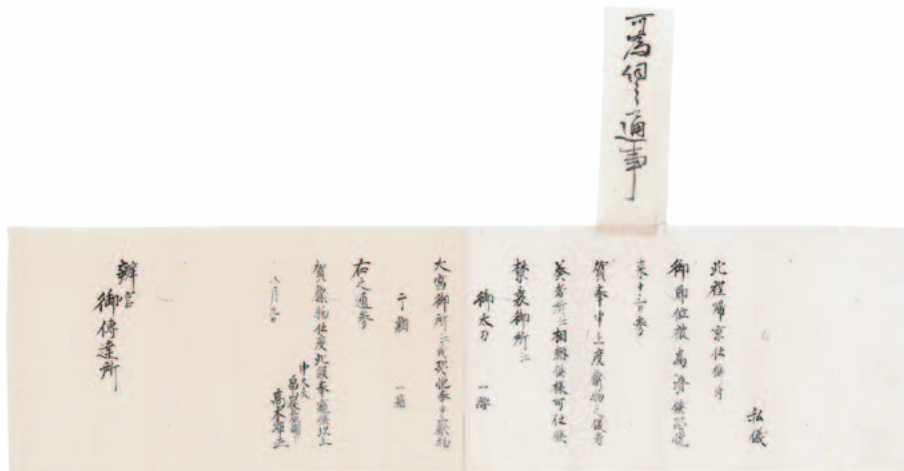 可為伺之通事
私儀
此程帰京仕候ニ付
御即位被為済候恐悦
来十三日参
賀奉申上度献物之儀者
兼而所ニ相願候様可仕候
禁裏御所江
御太刀 一腰
大宮御所江茂恐悦奉申上献物
干鯛 一箱
右之通参
賀献物仕度此段奉願候以上
八月九日
中大夫
辨官
御傳達所